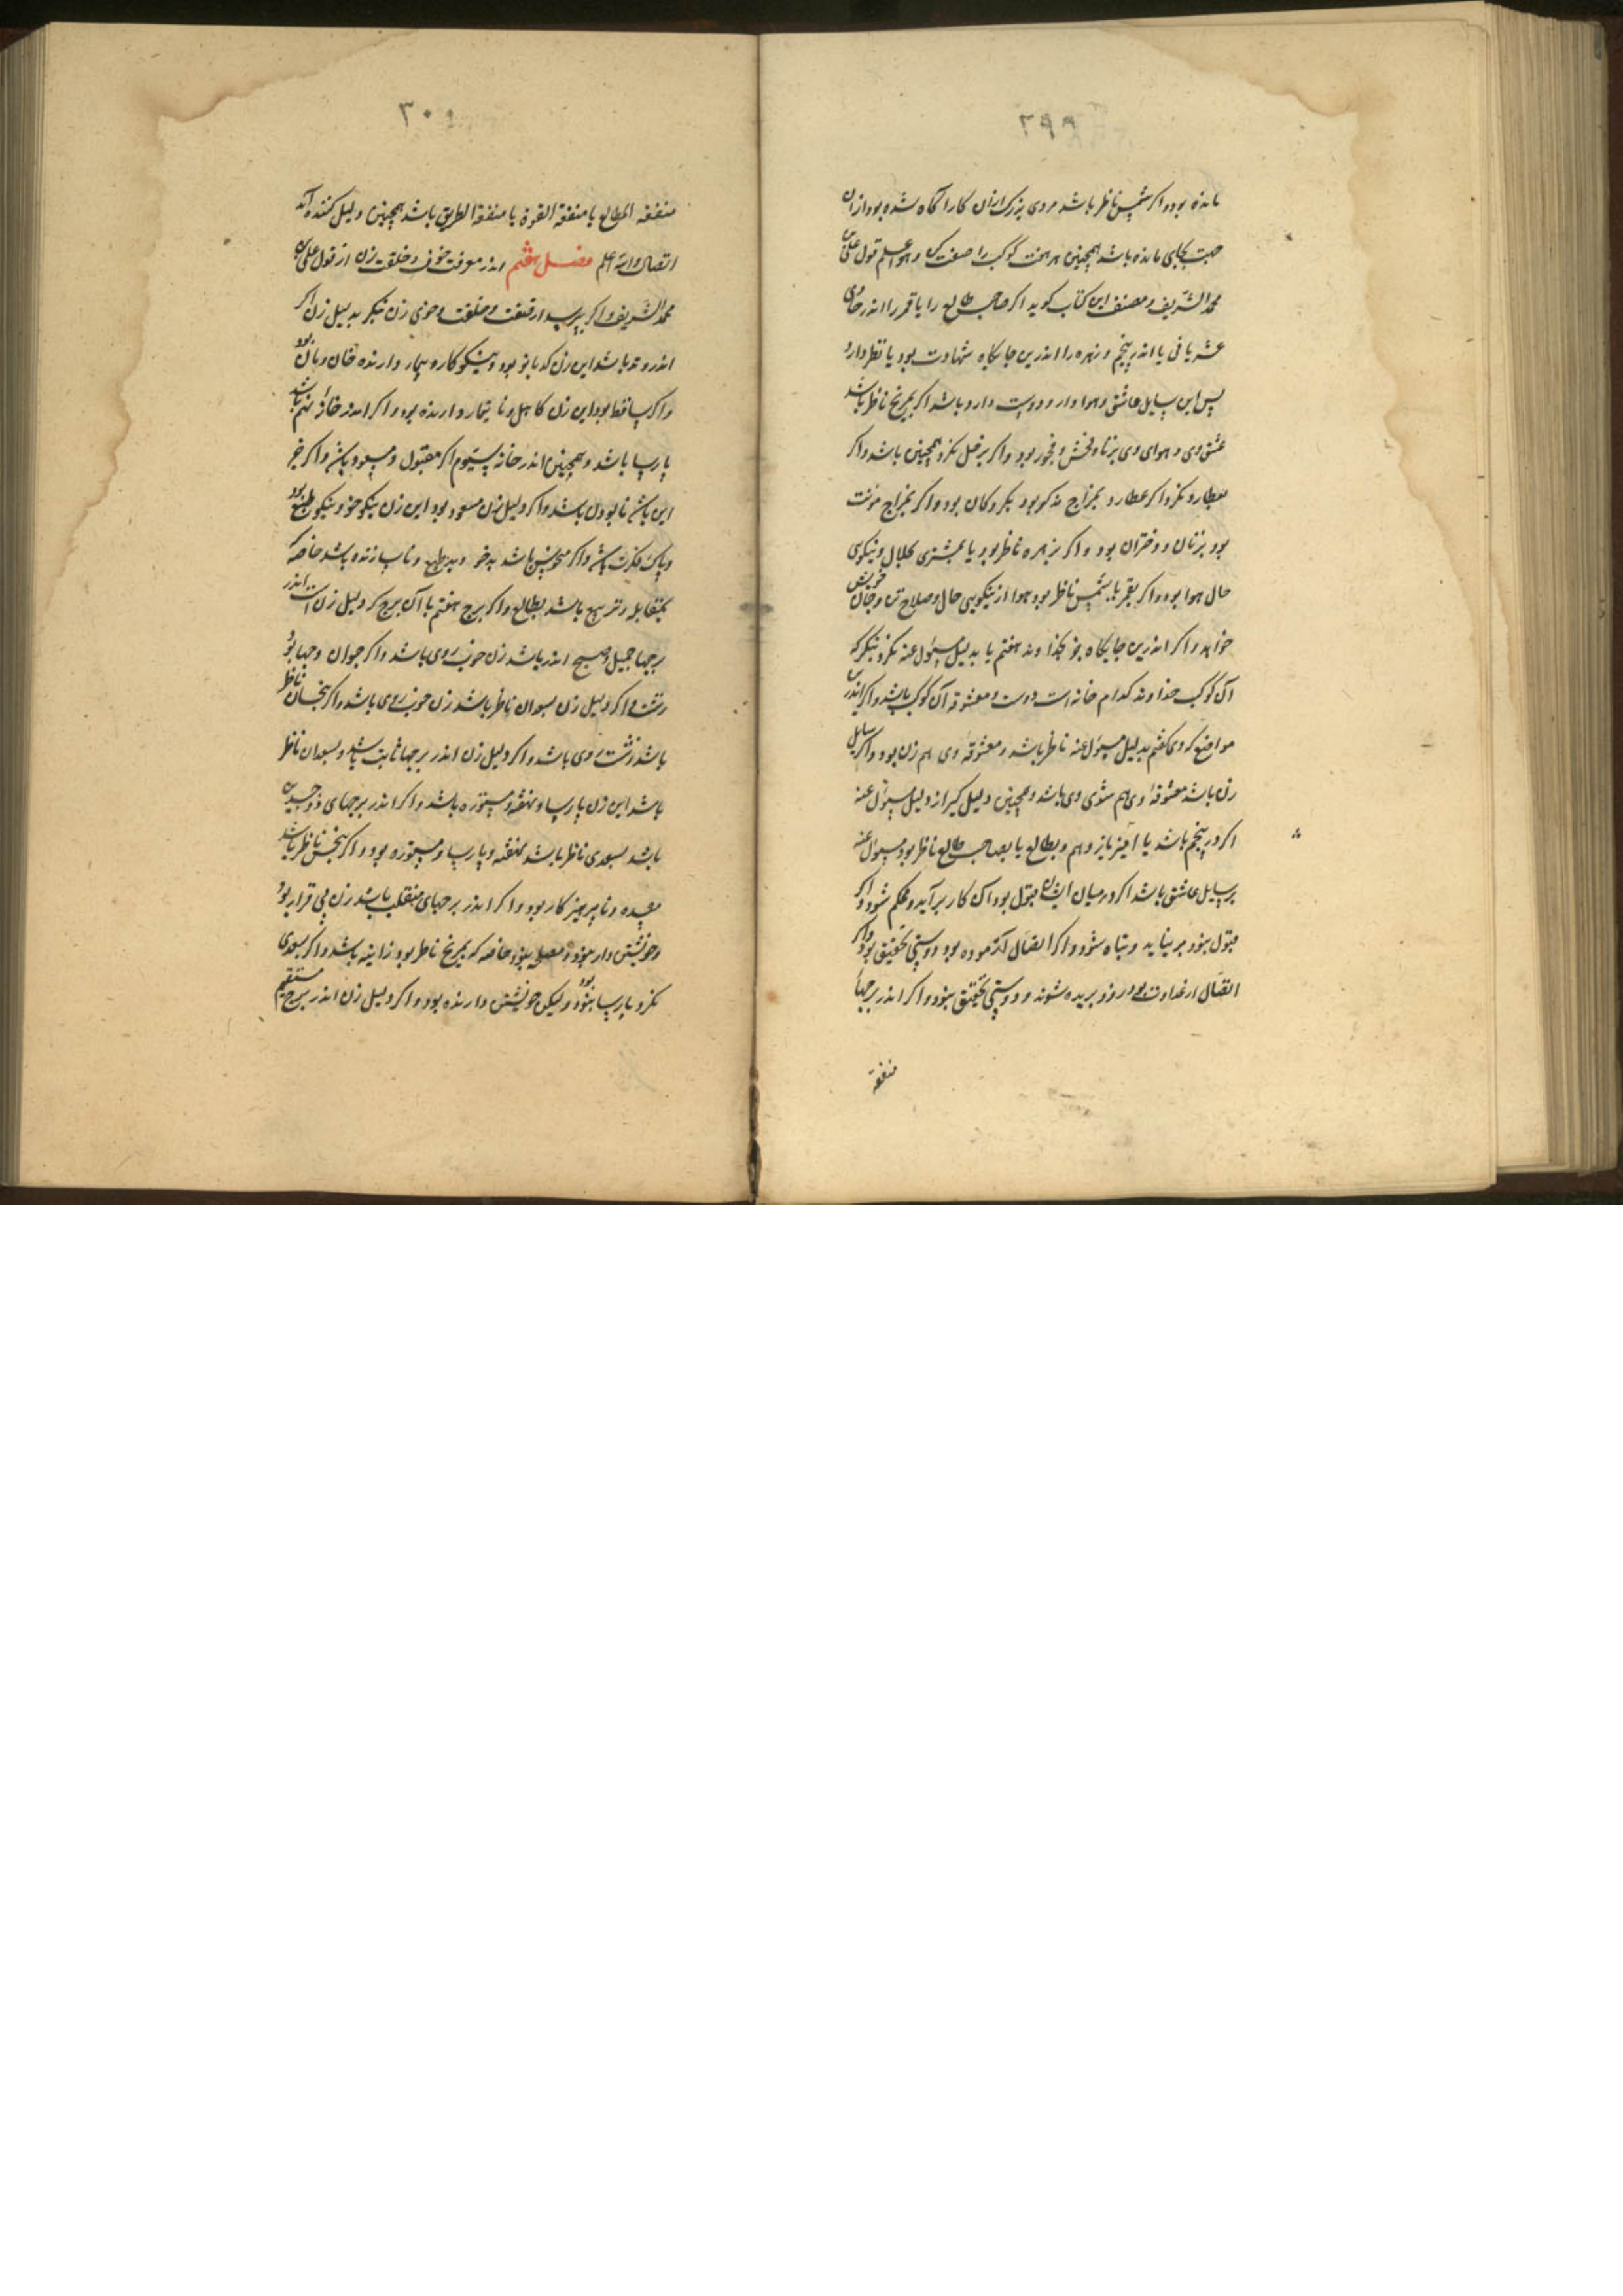 ۲۹۹
مانده بود و اکر شمس ناظر باشد مردی بزرک ازان کار آکاه شده بود ازان
بجای مانده باشد همچنین هر هفت کوکب را صفت کن و هو اعلم قول علی بن
محمد الشریف و مصنف این کتاب کوید اکر صاحب طالع را یا قمر را اندر حادی
عشر یافی یا اندر پنجم و زهره را اندرین جایکاه شهادت بود یا نظر دارد
پس این سایل عاشق و هوادار و دوست دار باشد اکر بمریخ ناظر باشد
عشق وی و هوای وی بزنا و فحش و فجور بود و اکر بزحل نکرد همچنین باشد و اکر
بعطارد نکرد و اکر عطارد بمزاج مذکر بود بکودکان بود و اکر بمزاج مؤنث
بود بزنان و دختران بود و اکر بزهره ناظر بود یا بمشتری بحلال و نیکویی
حال هوا بود و اکر بقمر یا بشمس ناظر بود هوا از نیکویی حال و صلاح تن و جان خویش
خواهد و اکر اندرین جایکاه جز خداوند هفتم یا بدلیل مسئول عنه نکرد بنکر که
آن کوکب خداوند کدام خانه است دوست و معشوقه آن کوکب باشد و اکر اندرین
مواضع که وی کفتم بدلیل مسئول عنه ناظر باشد و معشوقه وی هم زن بود و اکر سایل
زن باشد معشوقه وی هم شوی وی باشد و همچنین دلیل کیر از دلیل مسئول عنه
اکر در پنجم باشد یا یازدهم و بطالع یا بصاحب طالع ناظر بود مسئول عنه
بر سایل عاشق باشد اکر در میان ایشان قبول بود آن کار برآید و محکم شود و اکر
قبول نبود برنیاید و تباه شود و اکر اتصال از موده بود دوستی بحقیق بود و اکر
اتصال از عداوت بود زود بریده شوند و دوستی بحقیق نبود و اکر اندر برجها
متفقه
۳۰۰
متفقه المطالع یا متفقة القوة یا متفقة الطریق باشد همچنین دلیل کننده آند
اتصال والله اعلم فصل هفتم اندر معرفت خوی و خلقت زن از قول علی بن
محمد الشریف و اکر بپرسد از صفت و خلقت و خوی زن بنکر بدلیل زن اکر
اندر وتد باشد این زن کدبانو بود و نیکوکار و تیمار دارنده خان و مان بود
و اکر ساقط بود این زن کاهل و نا تیمار دارنده بود و اکر اندر خانهٔ نهم باشد
پارسا باشد و همچنین اندر خانه سیوم اکر مقبول و مسعود باشد و اکر جز
این باشد نابودل باشد و اکر دلیل زن مسعود بود این زن نیکو خو و نیکو طبع بود
و پاک فکرت باشد و اکر منحوس باشد بدخو و بدطبع و ناسازنده باشد خاصه که
بمقابله و تربیع باشد بطالع و اکر برج هفتم یا آن برج که دلیل زن است اندر
برجها جمیل و صبیح اندر باشد زن خوب روی باشد و اکر جوان وجها بود
زشت و اکر دلیل زن بسعدان ناظر باشد زن خوب روی باشد و اکر بنحسان ناظر
باشد زشت روی باشد و اکر دلیل زن اندر برجها ثابت باشد و بسعدان ناظر
باشد این زن پارسا و نهفته و مستوره باشد و اکر اندر برجهای ذوجسدین
باشد بسعدی ناظر باشد نهفته و پارسا و مستوره بود و اکر بنحس ناظر باشد
مفسده و ناپرهیزکار بود و اکر اندر برجهای منقلب باشد زن بی قرار بود
و خویشتن دار نبود و مصلح نبود خاصه که بمریخ ناظر بود زانیه باشد و اکر بسعدی
نکرد پارسا نبود و لیکن خویشتن دارنده بود و اکر دلیل زن اندر برج مستقیم